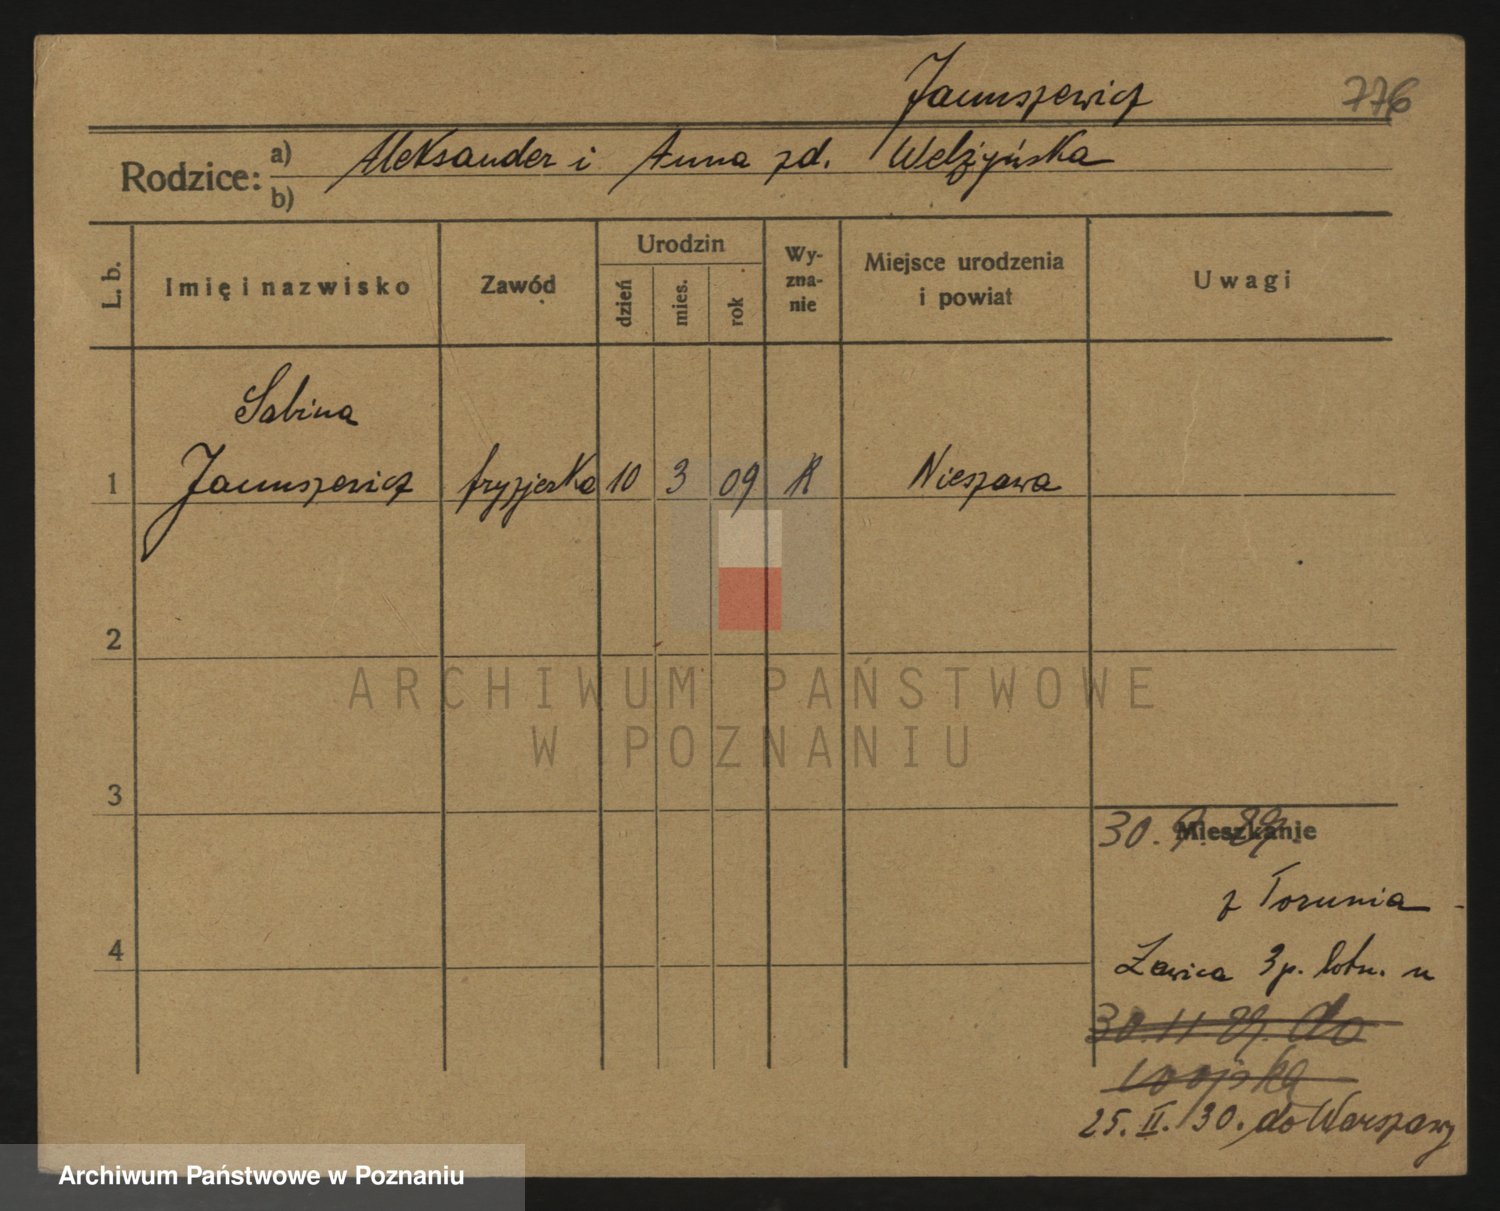 Januszewicz
776
Rodzice: a) Aleksander i Anna zd. Welżyńska
b)
L. b.
Imię i nazwisko
Zawód
Urodzin
dzień
mies.
rok
Wy-
zna-
nie
Miejsce urodzenia
i powiat
Uwagi
Sabina
1 Januszewicz fryzjerka 10 3 09 R Nieszawa
2
ARCHIWUM PAŃSTWOWE
W POZNANIU
3
Mieszkanie
30. 9. 29.
z Torunia
Ławica 3 p. lotn.
4
30. 11. 29. do
wojska
25. II. 30. do Warszawy
Archiwum Państwowe w Poznaniu